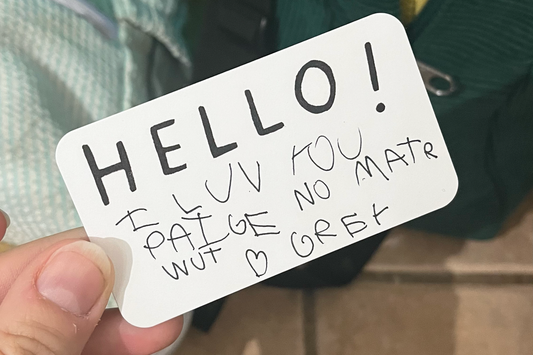 HELLO!
I LUV YOU
PAIGE NO MATR
WUT ♡ GREY